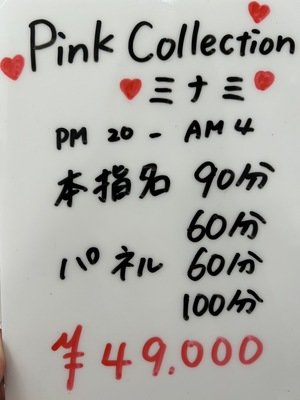 Pink Collection
ミナミ
PM 20 - AM 4
本指名 90分
60分
パネル 60分
100分
¥49.000